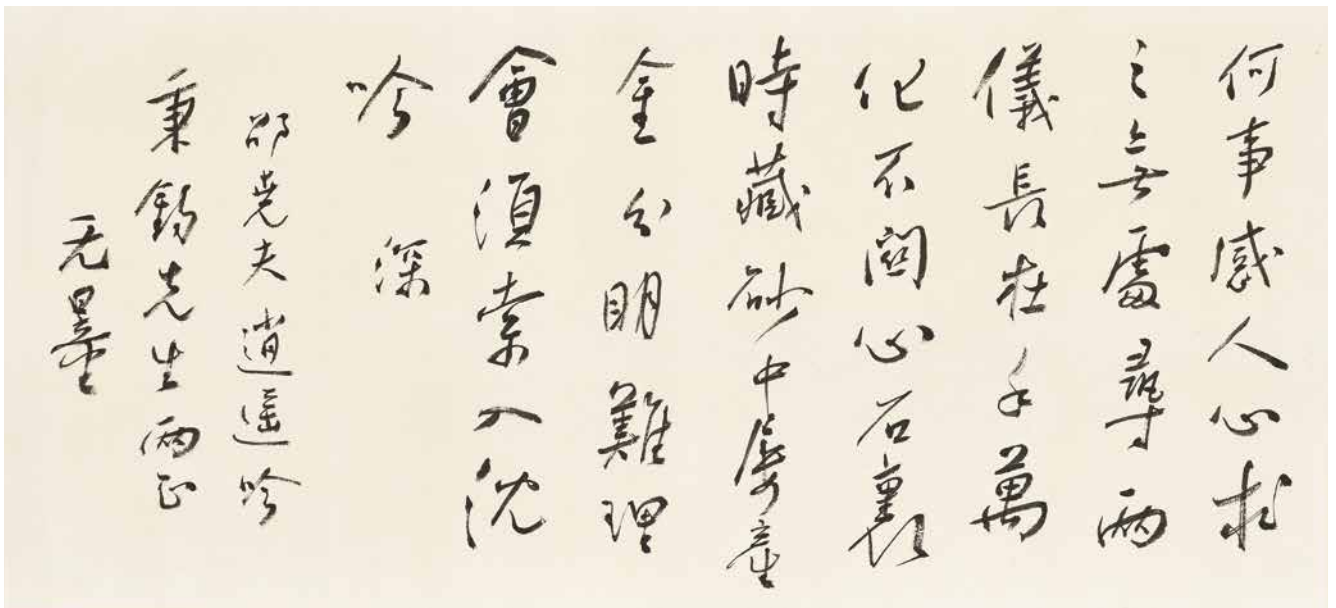 何事感人心求
之無處尋兩
儀長在手萬
化不關心石裏
時藏砂中屢產
金分明難理
會須索入沈
吟 深
邵堯夫逍遙吟
秉鈞先生兩正
无量